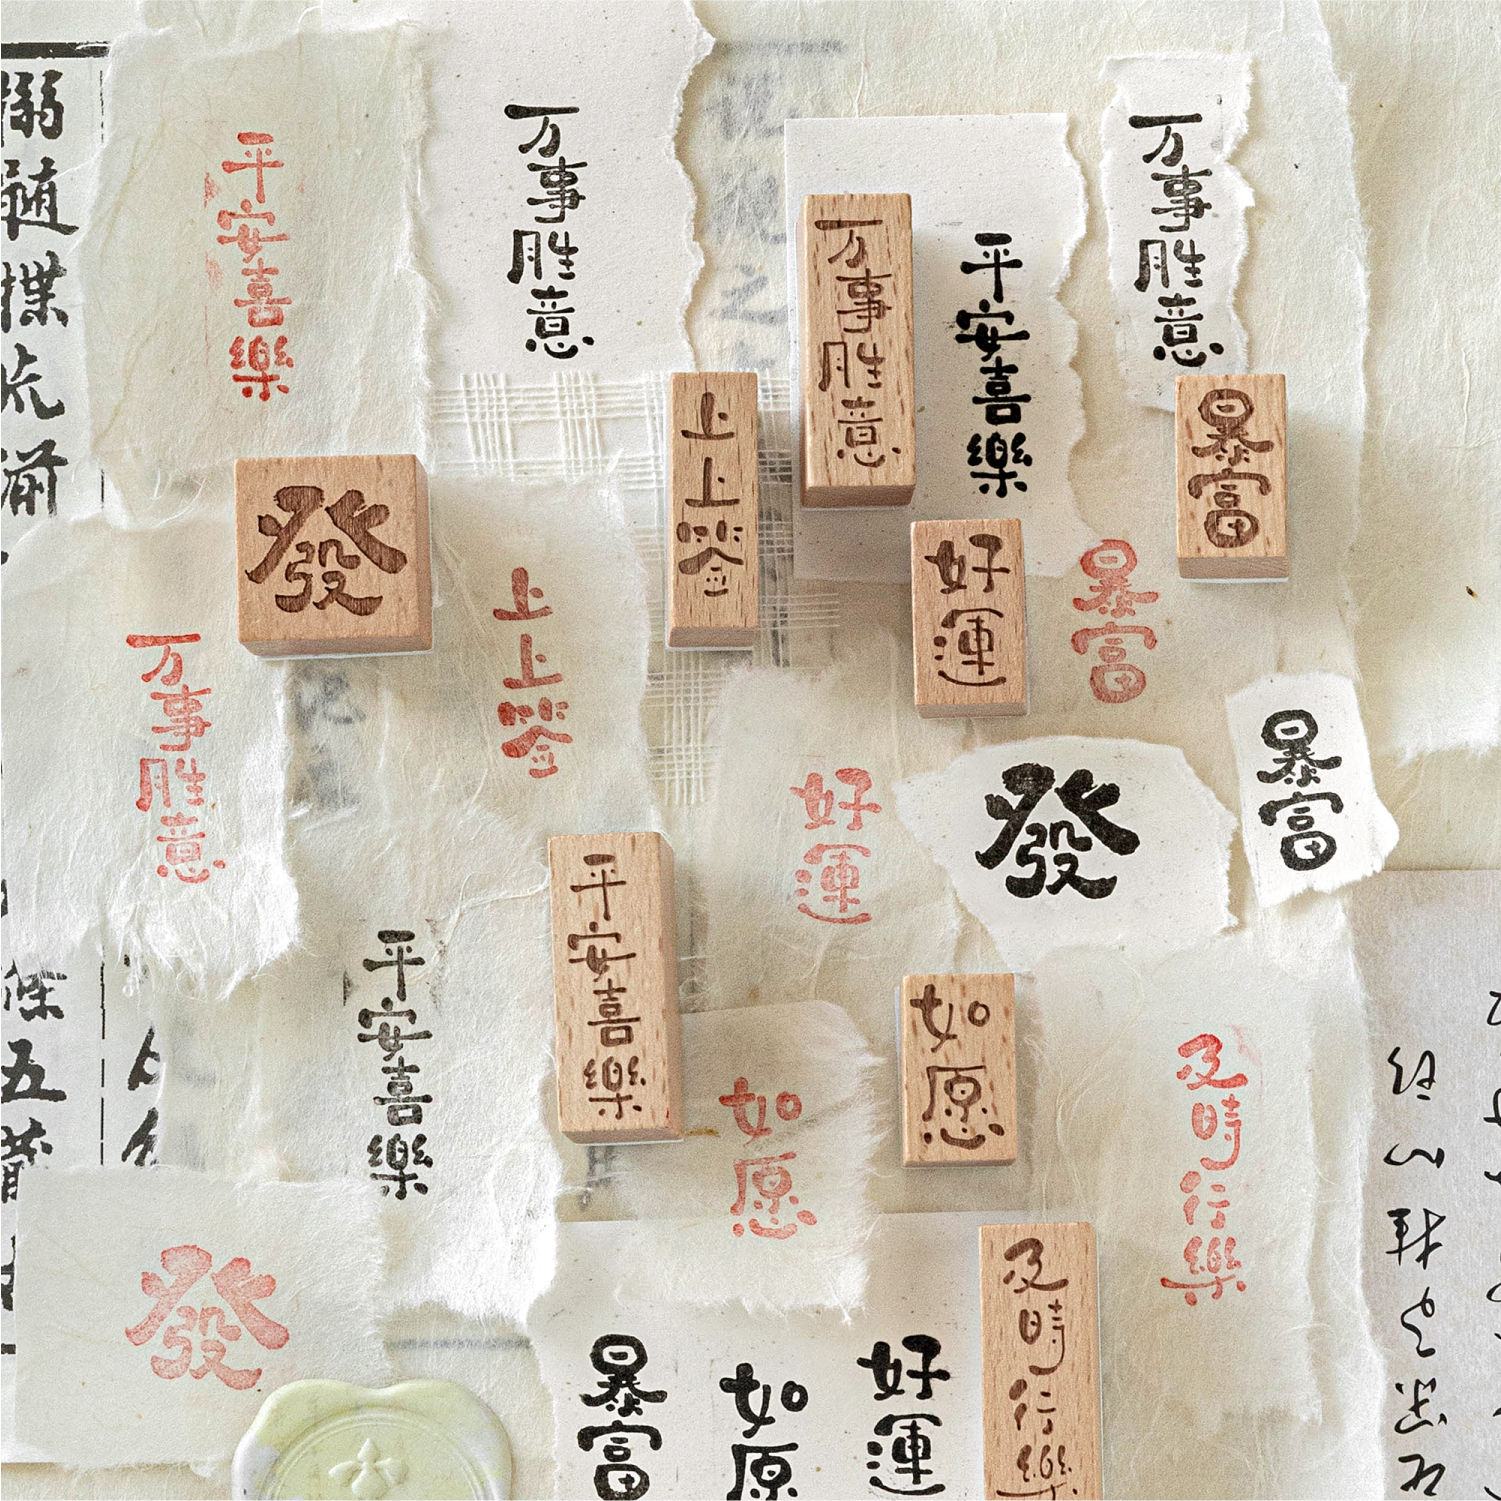 平安喜樂
万事胜意
万事胜意
平安喜樂
万事胜意
上上签
暴富
發
好運
暴富
上上签
万事胜意
好運
發
暴富
平安喜樂
平安喜樂
如愿
如愿
及時行樂
發
及時行樂
暴富
如原
好運
五